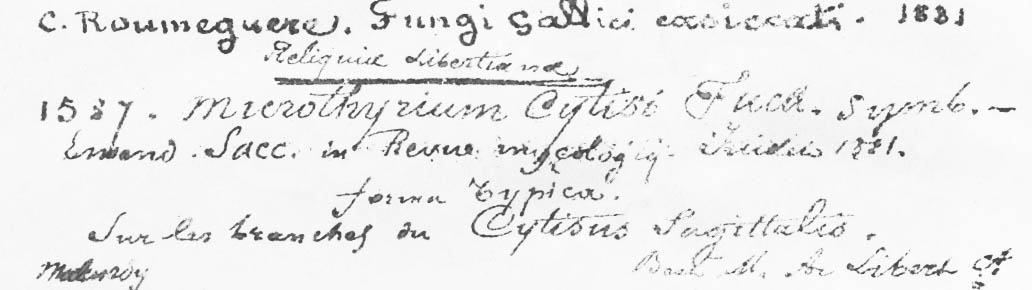 C. Roumeguere. Fungi Gallici exsiccati. 1881
Reliquiæ Libertianæ
1587. Microthyrium Cytisi Fuck. Symb. —
Emend. Sacc. in Revue mycologiq. 1881.
forma Typica.
Sur les branches du Cytisus Sagittalis.
Malmedy M. A. Libert